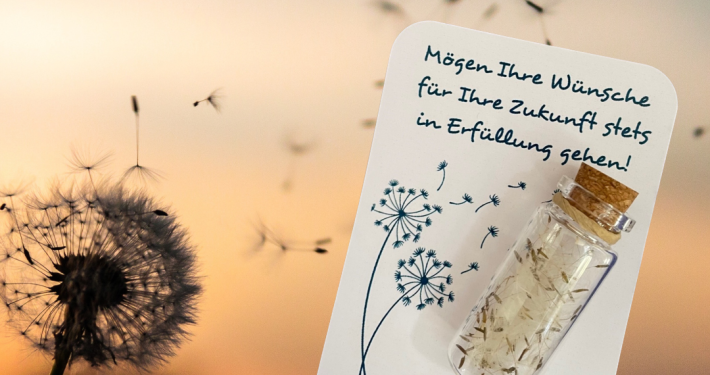 Mögen Ihre Wünsche
für Ihre Zukunft stets
in Erfüllung gehen!